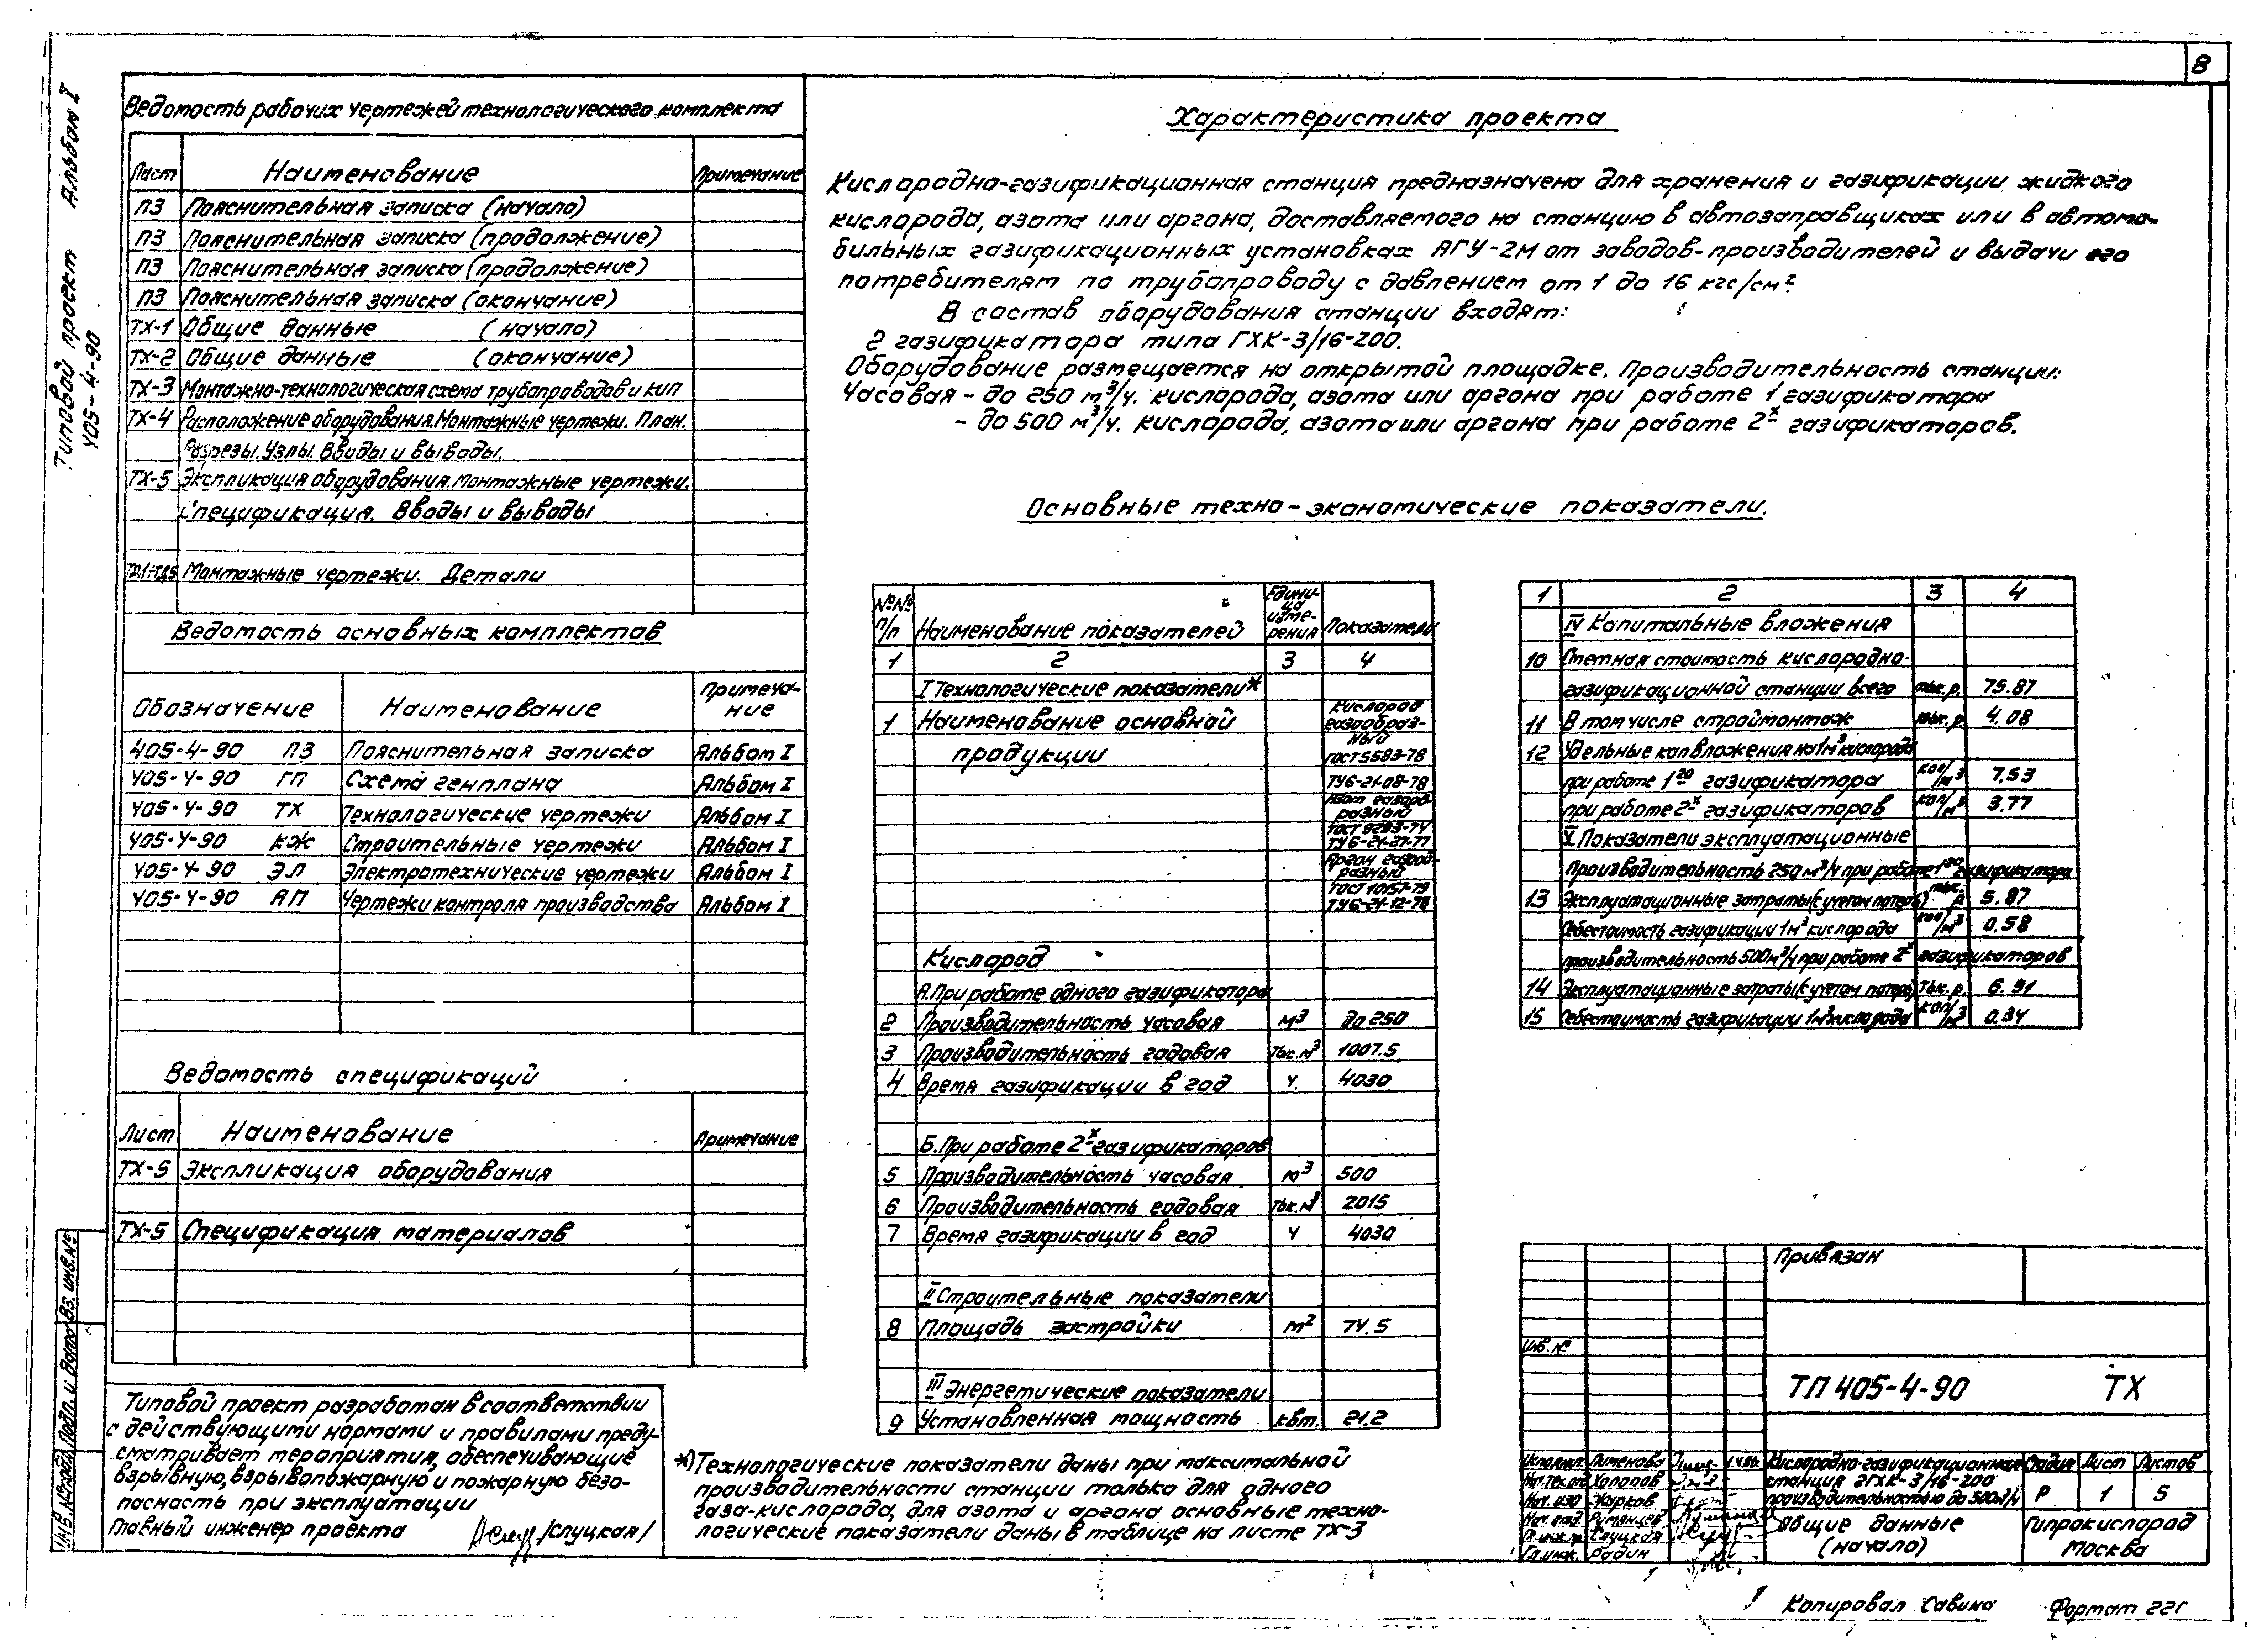 8
Альбом I
Типовой проект
405-4-90
Ведомость рабочих чертежей технологического комплекта
Лист Наименование Примечание
ПЗ Пояснительная записка (начало)
ПЗ Пояснительная записка (продолжение)
ПЗ Пояснительная записка (продолжение)
ПЗ Пояснительная записка (окончание)
ТХ-1 Общие данные (начало)
ТХ-2 Общие данные (окончание)
ТХ-3 Монтажно-технологическая схема трубопроводов и КИП
ТХ-4 Расположение оборудования. Монтажные чертежи. План.
Разрезы. Узлы. Вводы и выводы.
ТХ-5 Экспликация оборудования. Монтажные чертежи.
Спецификация. Вводы и выводы
Монтажные чертежи. Детали
Ведомость основных комплектов
Обозначение Наименование Примеча-
ние
405-4-90 ПЗ Пояснительная записка Альбом I
405-4-90 ГП Схема генплана Альбом I
405-4-90 ТХ Технологические чертежи Альбом I
405-4-90 КЖ Строительные чертежи Альбом I
405-4-90 ЭЛ Электротехнические чертежи Альбом I
405-4-90 АП Чертежи контроля производства Альбом I
Ведомость спецификаций
Лист Наименование Примечание
ТХ-5 Экспликация оборудования
ТХ-5 Спецификация материалов
Типовой проект разработан в соответствии
с действующими нормами и правилами преду-
сматривает мероприятия, обеспечивающие
взрывную, взрывопожарную и пожарную безо-
пасность при эксплуатации
Главный инженер проекта /Слуцкая/
Инв.№подл. Подп. и дата Вз. инв.№
Характеристика проекта
Кислородно-газификационная станция предназначена для хранения и газификации жидкого
кислорода, азота или аргона, доставляемого на станцию в автозаправщиках или в автомо-
бильных газификационных установках АГУ-2М от заводов-производителей и выдачи его
потребителям по трубопроводу с давлением от 1 до 16 кгс/см²
В состав оборудования станции входят:
2 газификатора типа ГХК-3/16-200.
Оборудование размещается на открытой площадке. Производительность станции:
Часовая - до 250 м³/ч. кислорода, азота или аргона при работе 1 газификатора
- до 500 м³/ч. кислорода, азота или аргона при работе 2х газификаторов.
Основные техно-экономические показатели.
№№
п/п Наименование показателей Едини-
ца
изме-
рения Показатели
1 2 3 4
I Технологические показатели*
1 Наименование основной
продукции
Кислород
газообраз-
ный
ГОСТ 5583-78
ТУ6-21-08-78
Азот газооб-
разный
ГОСТ 9293-74
ТУ6-21-27-77
Аргон газооб-
разный
ГОСТ 10157-79
ТУ6-21-12-78
Кислород
А. При работе одного газификатора
2 Производительность часовая м³ до 250
3 Производительность годовая тыс.м³ 1007.5
4 Время газификации в год ч. 4030
Б. При работе 2х газификаторов
5 Производительность часовая м³ 500
6 Производительность годовая тыс.м³ 2015
7 Время газификации в год ч 4030
II Строительные показатели
8 Площадь застройки м² 74.5
III Энергетические показатели
9 Установленная мощность квт. 21.2
*) Технологические показатели даны при максимальной
производительности станции только для одного
газа-кислорода, для азота и аргона основные техно-
логические показатели даны в таблице на листе ТХ-3
1 2 3 4
IV Капитальные вложения
10 Сметная стоимость кислородно-
газификационной станции всего тыс.р. 75.87
11 В том числе строймонтаж тыс.р. 4.08
12 Удельные капвложения на 1м³ кислорода
при работе 1го газификатора коп/м³ 7.53
при работе 2х газификаторов коп/м³ 3.77
V Показатели эксплуатационные
Производительность 250 м³/ч при работе 1го газификатора
13 Эксплуатационные затраты (с учетом потерь) тыс. р 5.87
Себестоимость газификации 1м³ кислорода коп/м³ 0.58
производительность 500 м³/ч при работе 2х газификаторов
14 Эксплуатационные затраты (с учетом потерь) тыс.р. 6.91
15 Себестоимость газификации 1м³ кислорода коп/м³ 0.34
Привязан
Инв. №
ТП 405-4-90 ТХ
Исполнил Пименова
Нач.тех.отд Холопов
Нач. ИЗО Жарков
Нач. отд. Румянцев
Гл.инж.пр. Слуцкая
Гл.инж. Радин
Кислородно-газификационная
станция 2ГХК-3/16-200
производительностью до 500м³/ч
Стадия Лист Листов
Р 1 5
Общие данные
(начало)
Гипрокислород
Москва
Копировал Савина Формат 22Г